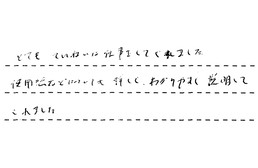 とても ていねいに 仕事をしてくれました
使用感などについても 詳しく、わかりやすく 説明して
くれました